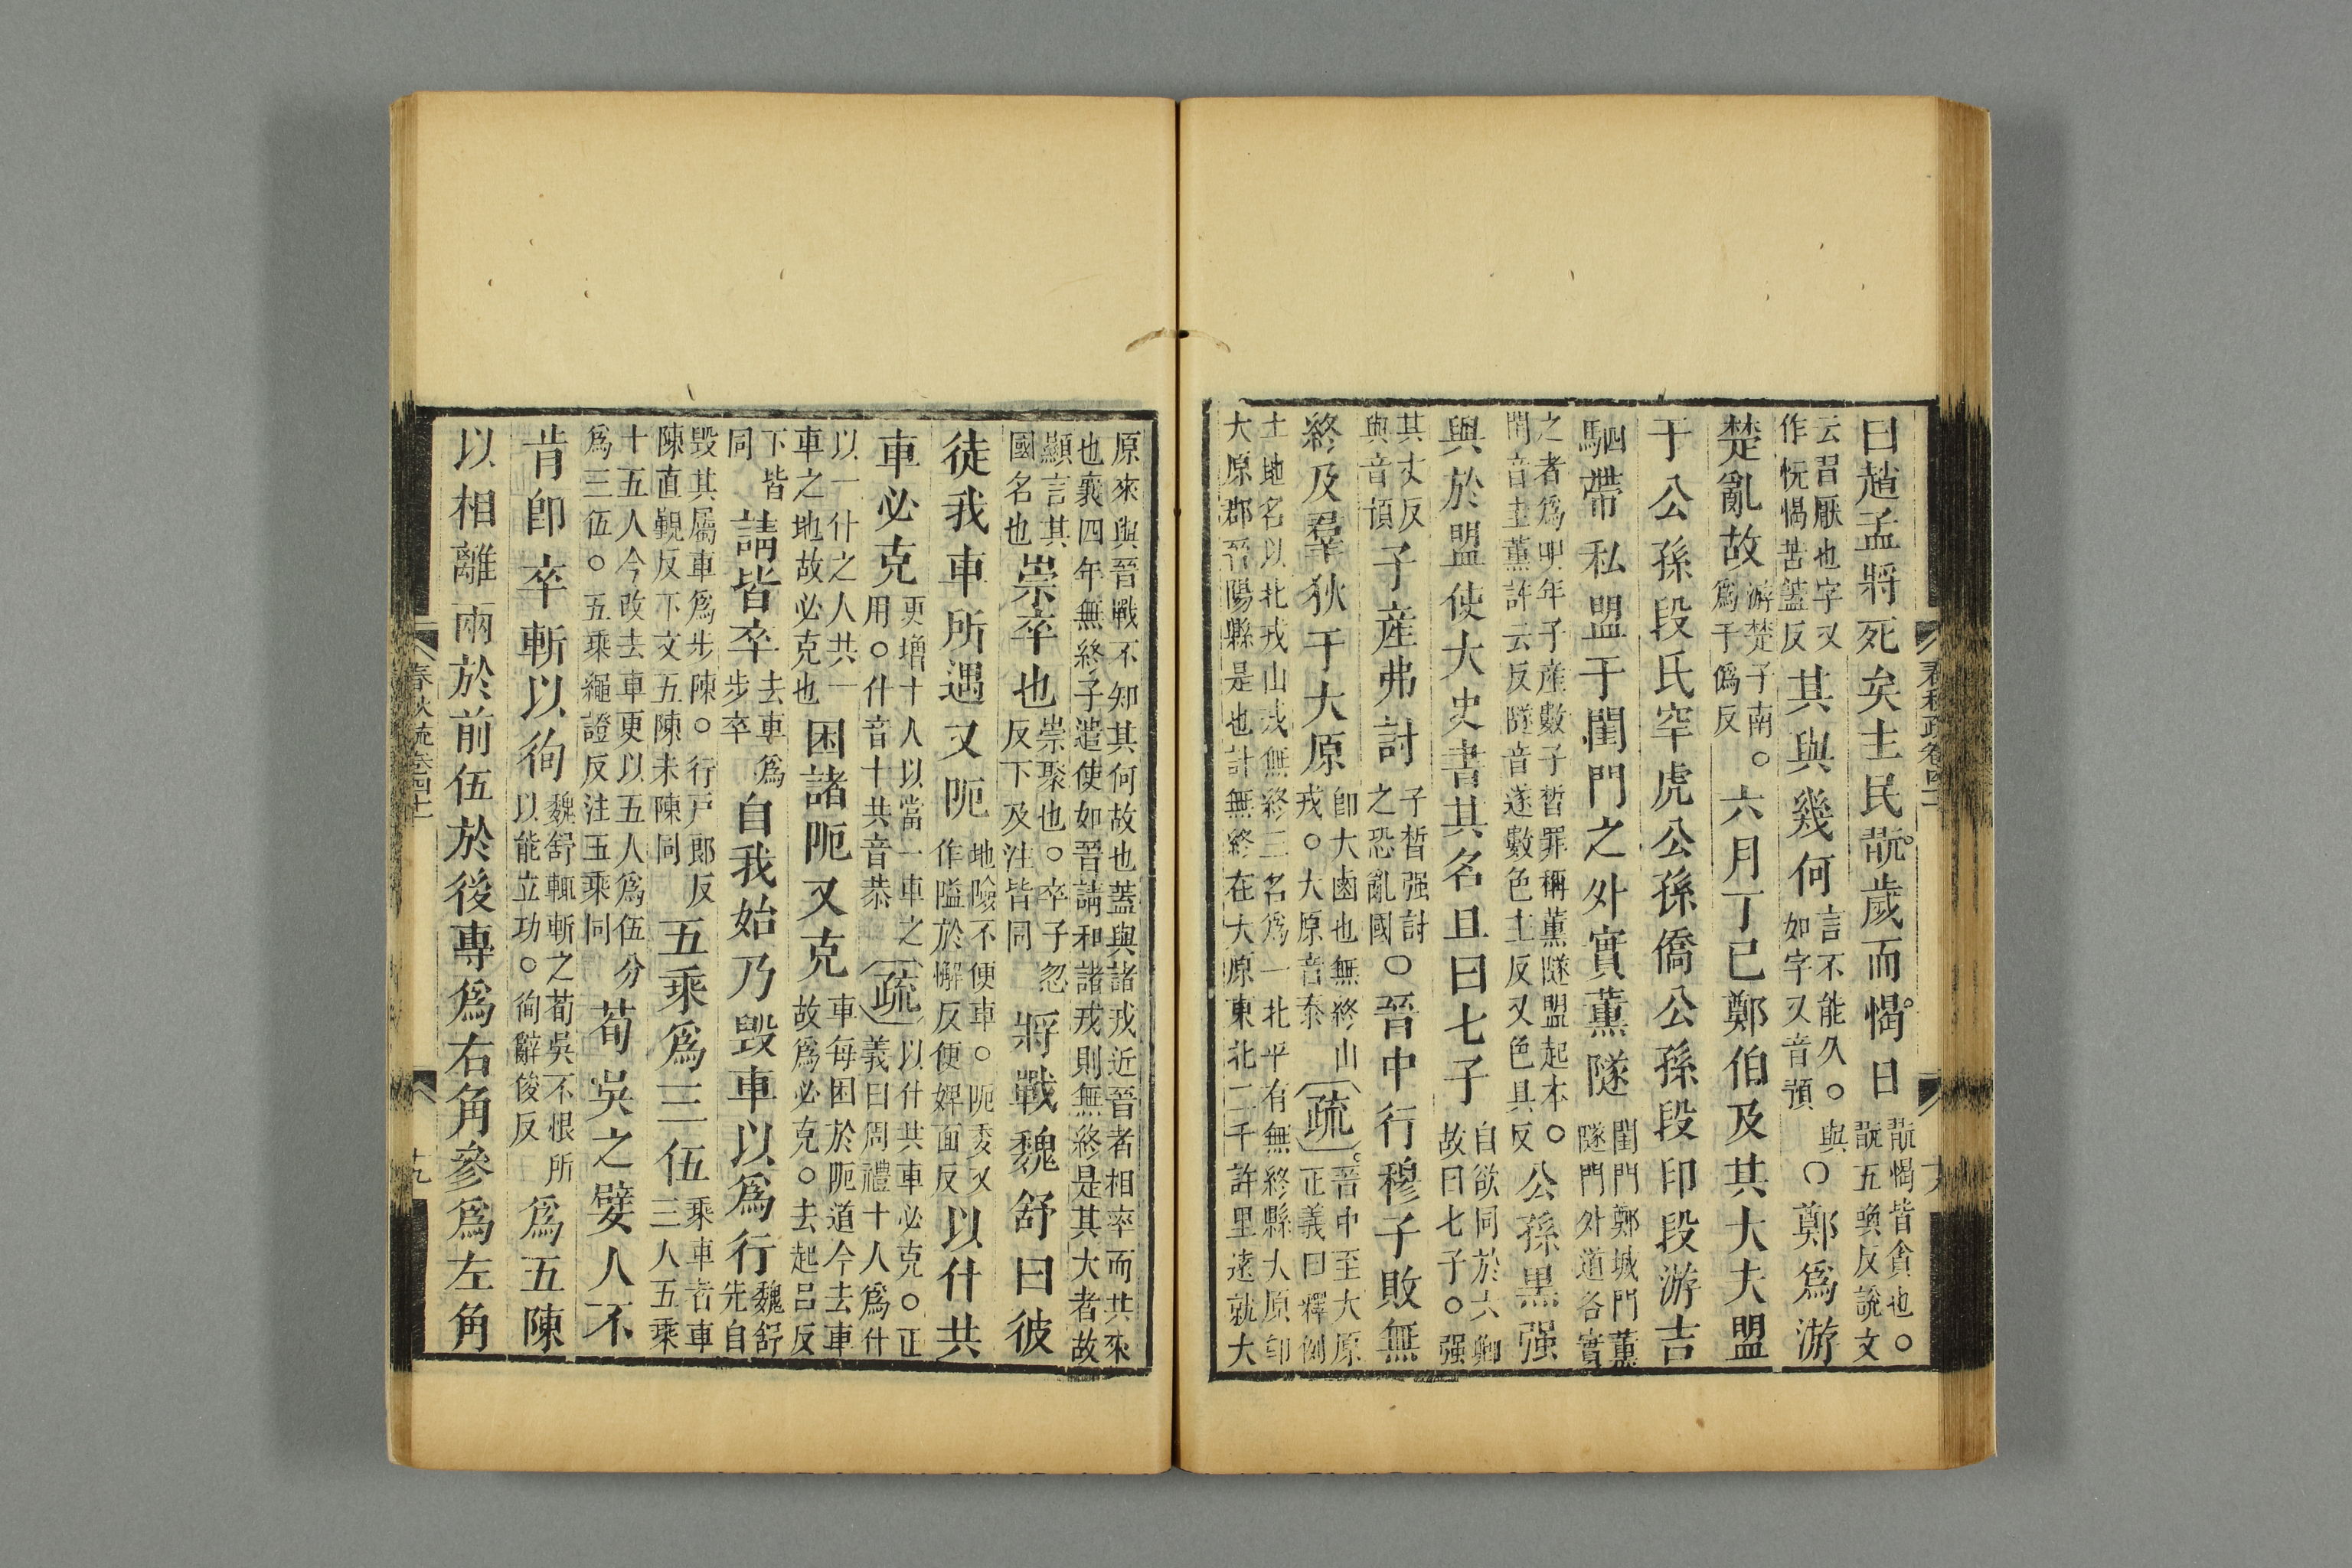 曰趙孟將死矣主民翫歲而愒日翫愒皆貪也○翫五喚反說文
云習厭也字又作忨愒苦蓋反其與幾何言不能久○與如字又音預○鄭爲游
楚亂故游楚子南○爲于僞反六月丁巳鄭伯及其大夫盟
于公孫段氏罕虎公孫僑公孫段印段游吉
駟帶私盟于閨門之外實薰隧閨門鄭城門薰隧門外道名實
之者爲明年子產數子晳罪稱薰隧盟起本○閨音圭薰許云反隧音遂數色主反又色具反公孫黑强
與於盟使大史書其名且曰七子自欲同於六卿故曰七子○强
其丈反與音預子產弗討子晳强討之恐亂國○晉中行穆子敗無
終及羣狄于大原卽大鹵也無終山戎○大原音泰疏晉中至大原○正義曰釋例
土地名以北戎山戎無終三名爲一北平有無終縣大原卽大原郡晉陽縣是也計無終在大原東北二千許里遠就大
春秋疏卷四十一
原來與晉戰不知其何故也蓋與諸戎近晉者相率而共來也襄四年無終子遣使如晉請和諸戎則無終是其大者故
顯言其國名也崇卒也崇聚也○卒子忽反下及注皆同將戰魏舒曰彼
徒我車所遇又阨地險不便車○阨委又作隘於懈反便婢面反以什共
車必克更增十人以當一車之用○什音十共音恭疏以什共車必克○正義曰周禮十人爲什
以一什之人共一車之地故必克也困諸阨又克車每困於阨道今去車故爲必克○去起呂反
下皆同請皆卒去車爲步卒自我始乃毀車以爲行魏舒先自
毀其屬車爲步陳○行戸郎反陳直覲反下文五陳未陳同五乘爲三伍乘車者車三人五乘
十五人今改去車更以五人爲伍分爲三伍○五乘繩證反注五乘同荀吳之嬖人不
肯卽卒斬以徇魏舒輒斬之荀吳不恨所以能立功○徇辭俊反爲五陳
以相離兩於前伍於後專爲右角參爲左角
春秋疏卷四十一
十九